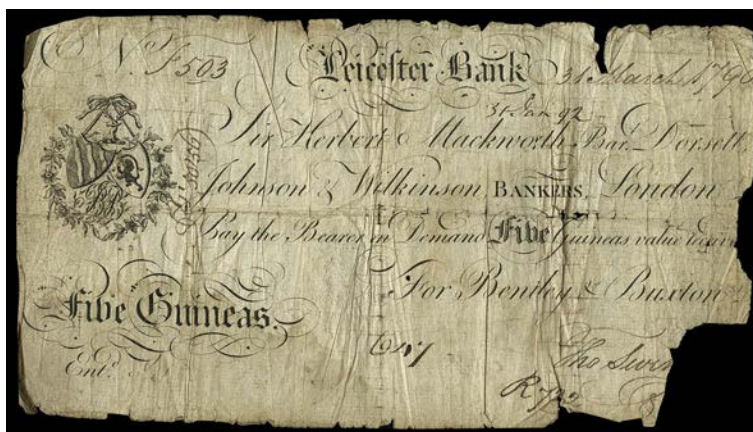 No. F503 Leicester Bank 31 March 179
31 Jan 92
Sir Herbert Mackworth Bart. Dorsett,
Johnson & Wilkinson, BANKERS, London
Pay the Bearer on Demand Five Guineas value receiv
For Bentley & Buxton
Five Guineas.
Entd.
Tho Swin